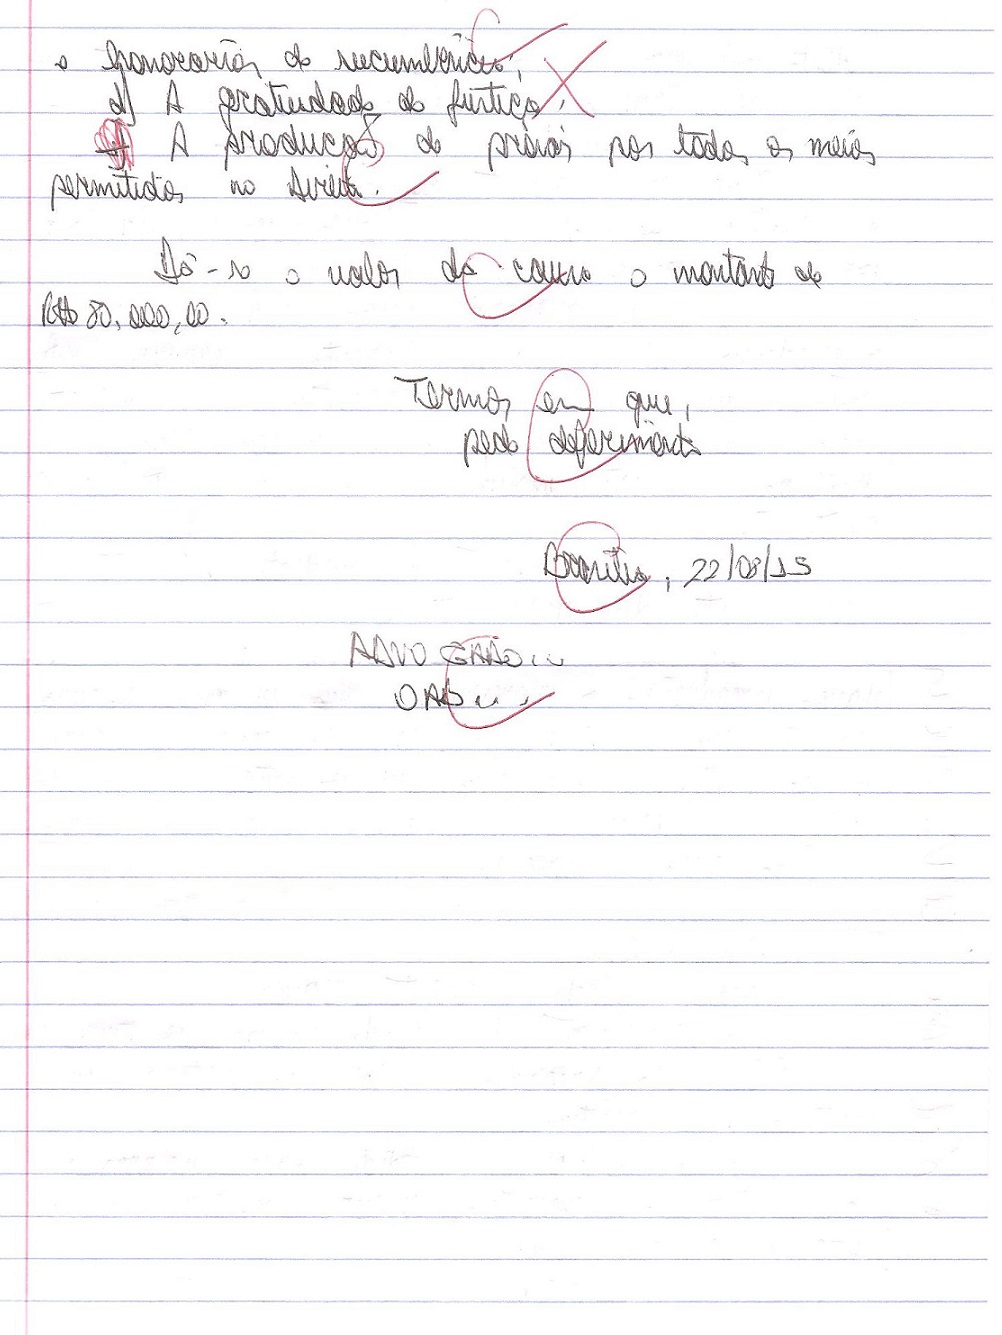 e honorários de sucumbência;
d) A gratuidade de justiça.
A produção de provas por todos os meios
permitidos no Direito.
Dá-se o valor da causa o montante de
R$ 80.000,00.
Termos em que,
pede deferimento
Brasília, 22/08/15
ADVOGADO...
OAB...